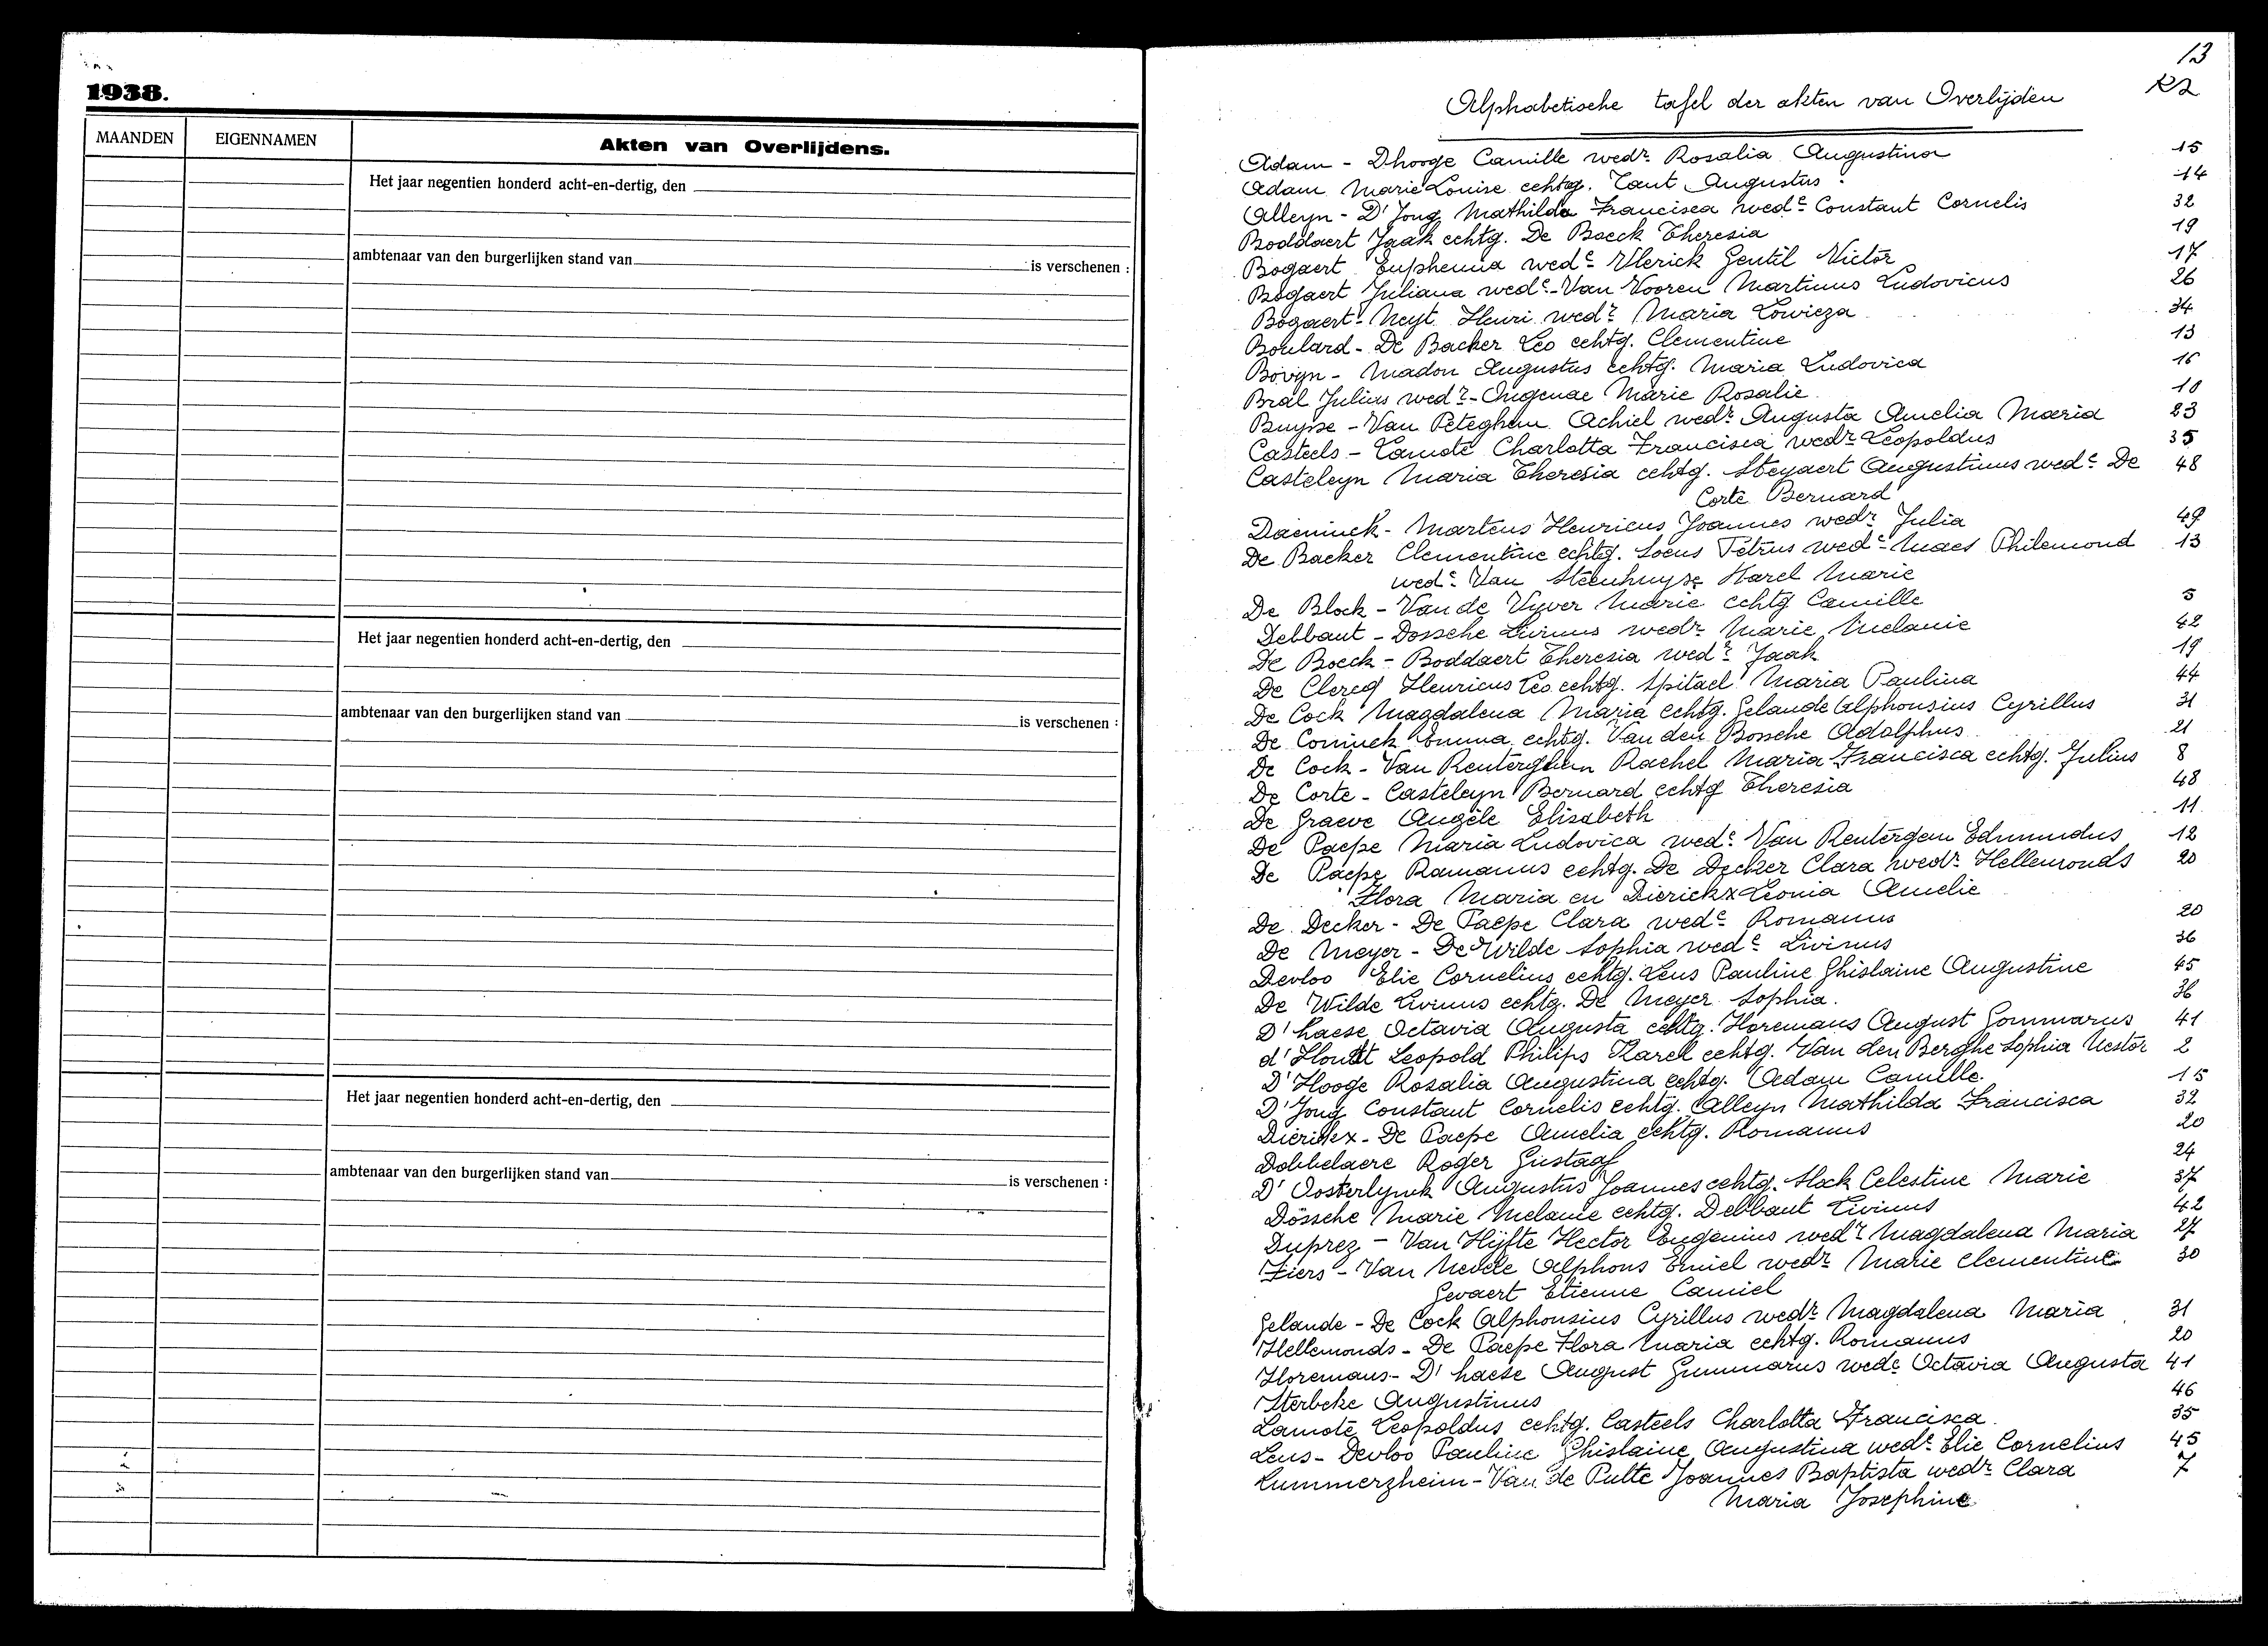 1938.
MAANDEN
EIGENNAMEN
Akten van Overlijdens.
Het jaar negentien honderd acht-en-dertig, den
ambtenaar van den burgerlijken stand van
is verschenen :
Het jaar negentien honderd acht-en-dertig, den
ambtenaar van den burgerlijken stand van
is verschenen :
Het jaar negentien honderd acht-en-dertig, den
ambtenaar van den burgerlijken stand van
is verschenen :
13
R2
Alphabetische tafel der akten van Overlijden
Adam - Dhooge Camille wedr Rosalia Augustina 15
Adam Marie Louise echtg. Tant Augustus 14
Alleyn - D'Jong Mathilda Francisca wede Constant Cornelis 32
Boddaert Jaak echtg. De Boeck Theresia 19
Bogaert Euphemia wede Vlerick Gentil Victor 17
Bogaert Juliana wede Van Vooren Martinus Ludovicus 26
Bogaert - Neyt Henri wedr Maria Lowieza 34
Boulard - De Backer Leo echtg. Clementine 13
Bovyn - Madon Augustus echtg. Maria Ludovica 16
Bral Julius wedr - Ongenae Marie Rosalie 10
Buysse - Van Peteghem Achiel wedr Augusta Amelia Maria 23
Casteels - Lamote Charlotta Francisca wedr Leopoldus 35
Casteleyn Maria Theresia echtg. Steyaert Augustinus wede De 48
Corte Bernard
Daeninck - Martens Henricus Joannes wedr Julia 49
De Backer Clementine echtg. Soens Petrus wede Maes Philemond 13
wede Van Steenhuyse Karel Marie
De Block - Van de Vyver Marie echtg Camille 5
Debbaut - Dossche Livinus wedr Marie Melanie 42
De Boeck - Boddaert Theresia wedr Jaak 19
De Clercq Henricus Leo echtg. Spitael Maria Paulina 44
De Cock Magdalena Maria echtg. Gelaude Alphonsius Cyrillus 31
De Coninck Emma echtg. Van den Bossche Adolphus 21
De Cock - Van Renterghem Rachel Maria Francisca echtg. Julius 8
De Corte - Casteleyn Bernard echtg Theresia 48
De Graeve Angèle Elisabeth 11
De Paepe Maria Ludovica wede Van Rentergem Edmundus 12
De Paepe Romanus echtg. De Decker Clara wedr Hellemonds 20
Flora Maria en Dierickx Leonia Amelie
De Decker - De Paepe Clara wede Romanus 20
De Meyer - De Wilde Sophia wede Livinus 36
Devloo Elie Cornelius echtg. Lens Pauline Ghislaine Augustine 45
De Wilde Livinus echtg. De Meyer Sophia. 36
D'haese Octavia Augusta echtg. Horemans August Gommarus 41
d'Hondt Leopold Philips Karel echtg. Van den Berghe Sophia Nestor 2
D'Hooge Rosalia Augustina echtg. Adam Camille. 15
D'Jong Constant Cornelis echtg. Alleyn Mathilda Francisca 32
Dierickx - De Paepe Amelia echtg. Romanus 20
Dobbelaere Roger Gustaaf 24
D'Oosterlynck Augustus Joannes echtg. Stock Celestine Marie 37
Dossche Marie Melanie echtg. Debbaut Livinus 42
Duprez - Van Hijfte Hector Eugenius wedr Magdalena Maria 27
Fiers - Van Nevele Alphons Emiel wedr Marie Clementine 30
Gevaert Etienne Camiel
Gelaude - De Cock Alphonsius Cyrillus wedr Magdalena Maria 31
Hellemonds - De Paepe Flora Maria echtg. Romanus 20
Horemans - D'haese August Gummarus wede Octavia Augusta 41
Sterbeke Augustinus 46
Lamote Leopoldus echtg. Casteels Charlotta Francisca. 35
Lens - Devloo Pauline Ghislaine Augustina wede Elie Cornelius 45
Lummerzheim - Van de Putte Joannes Baptista wedr Clara 7
Maria Josephine